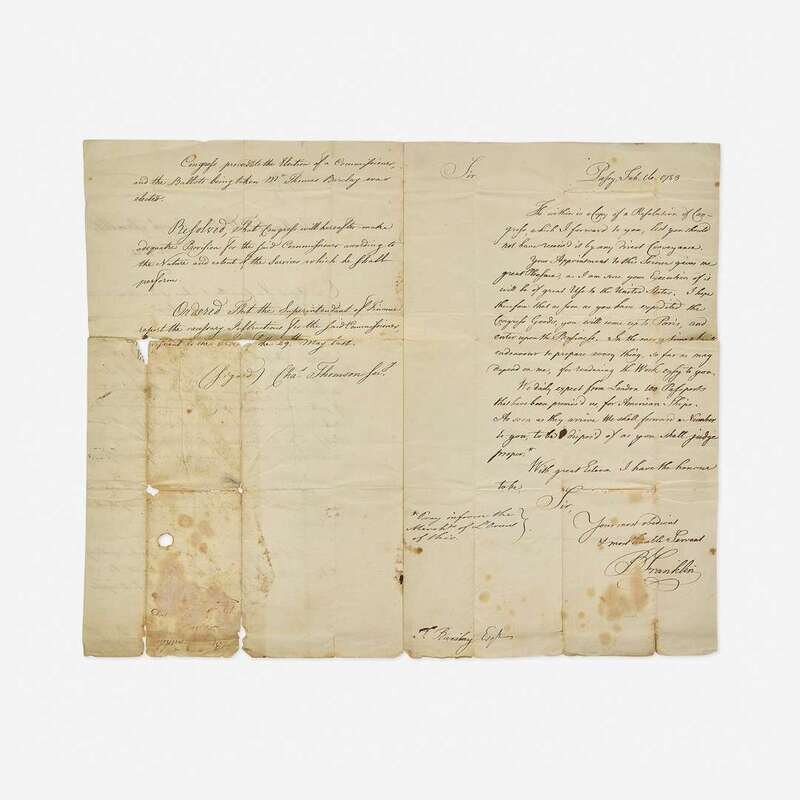 Congress proceeded to the Election of a Commissioner,
and the Ballots being taken Mr. Thomas Barclay was
elected.
Resolved, That Congress will hereafter make
adequate Provision for the said Commissioner according to
the Nature and extent of the Services which he shall
perform.
Ordered That the Superintendant of Finance
report the necessary Instructions for the said Commissioner
to the the 29th May last.
(Signed) Chas. Thomson Secy.
Sir
Passy, Feb. 1783
The within is a Copy of a Resolution of Con-
gress, which I forward to you, lest you should
not have receiv'd it by any direct Conveyance.
Your Appointment to this Service gives me
great Pleasure, as I am sure your Execution of it
will be of great Use to the United States. I hope
therefore that as soon as you have expedited the
Congress Goods, you will come up to Paris, and
enter upon the Business. In the mean time
endeavour to prepare every thing, so far as may
depend on me, for rendering the Work easy to you.
We daily expect from London 100 Passports
that have been promised us for American Ships.
As soon as they arrive We shall forward a Number
to you, to be dispos'd of as you shall judge
proper.*
With great Esteem I have the honour
to be,
Sir,
Your most obedient
& most humble Servant
B Franklin
*Pray inform the
Merchts. of L'Orient
of this.
T. Barclay Esqr.